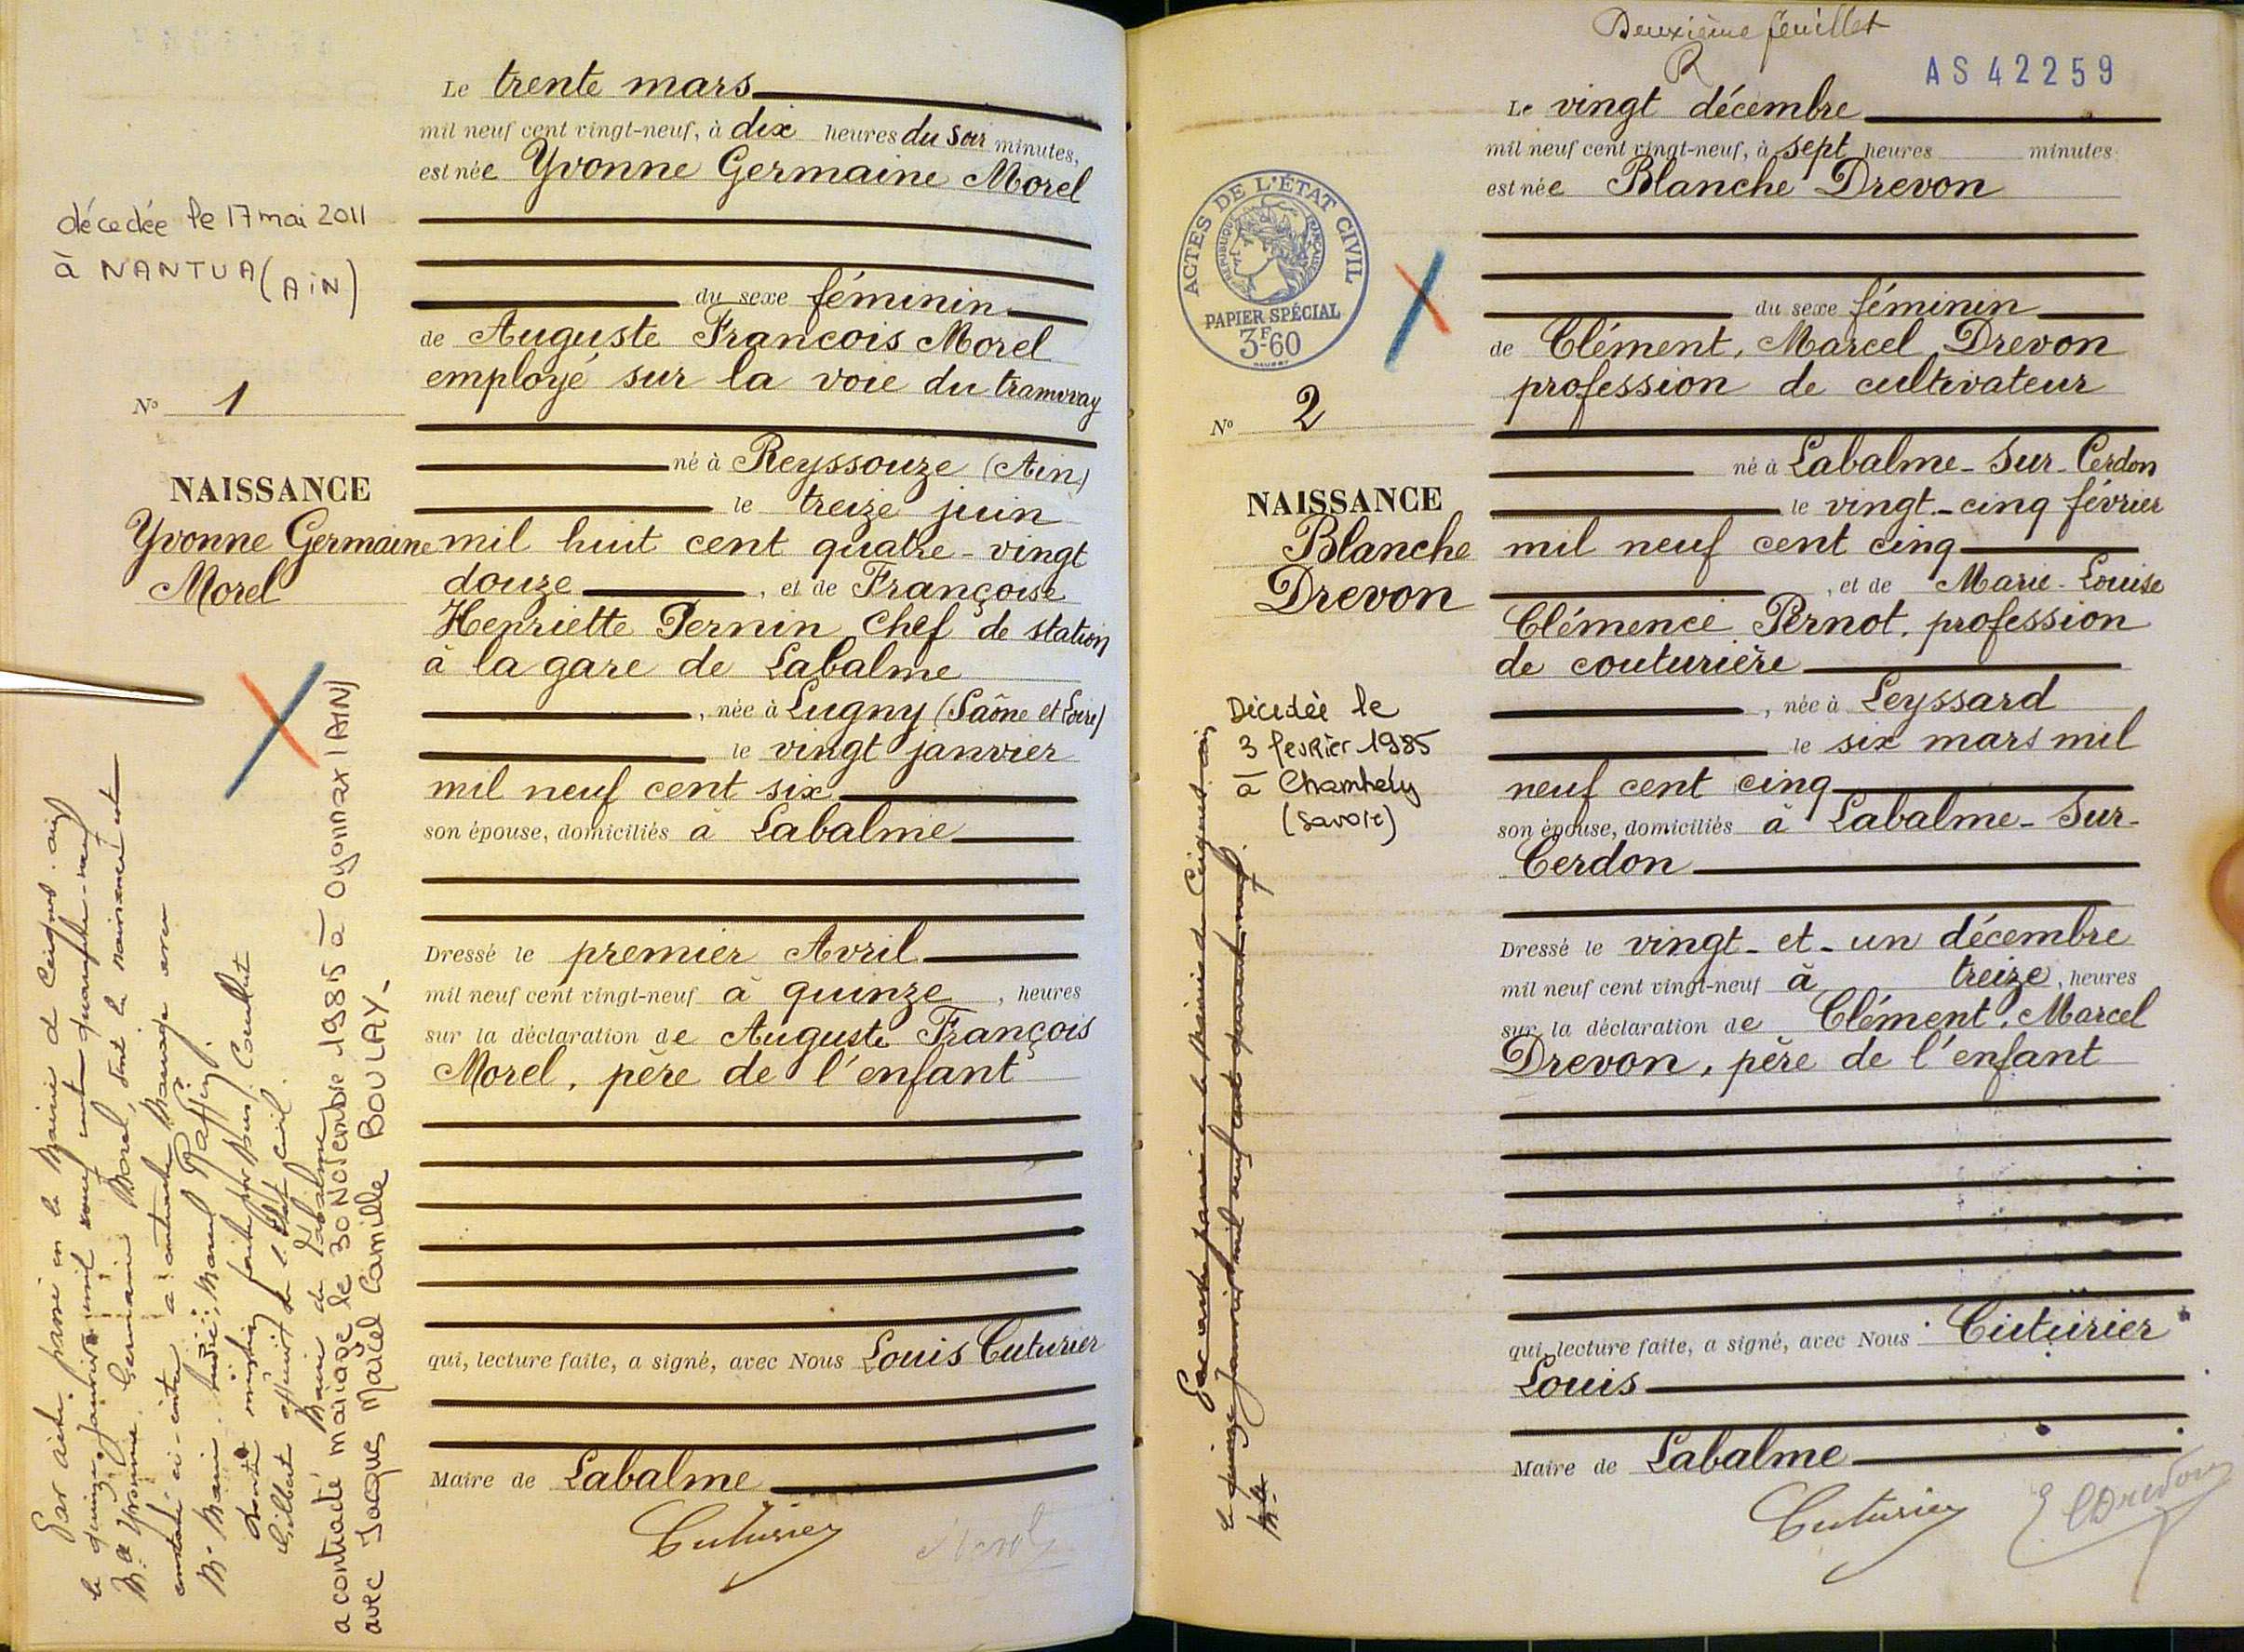 Le trente mars
mil neuf cent vingt-neuf, à dix heures du soir minutes,
est née Yvonne Germaine Morel
décedée le 17 mai 2011
à NANTUA (AIN)
du sexe féminin
de Auguste Francois Morel
employé sur la voie du tramway
N° 1
né à Reyssouze (Ain)
NAISSANCE
Yvonne Germaine
Morel
le treize juin
mil huit cent quatre-vingt
douze, et de Françoise
Henriette Pernin Chef de station
à la gare de Labalme
, née à Lugny (Saône et Loire)
le vingt janvier
mil neuf cent six
son épouse, domiciliés à Labalme
Dressé le premier Avril
mil neuf cent vingt-neuf à quinze, heures
sur la déclaration de Auguste François
Morel, père de l'enfant
qui, lecture faite, a signé, avec Nous Louis Cuturier
Maire de Labalme
Cuturier
Par acte passé en la Mairie de Ceignes
le quinze janvier mil neuf cent quarante-neuf
Mlle Yvonne Germaine Morel, dont la naissance est
constatée ci-contre a contracté mariage avec
Mr Marcel Raffin
faite par Nous
Gilbert officier de l'état civil
Mairie de Labalme
a contracté mariage le 30 Novembre 1985 à Oyonnax (AIN)
avec Jacques Marcel Camille BOULAY-
Deuxième feuillet
R
AS 42259
Le vingt décembre
mil neuf cent vingt-neuf, à sept heures minutes
est née Blanche Drevon
ACTES DE L'ÉTAT CIVIL
RÉPUBLIQUE FRANÇAISE
PAPIER SPÉCIAL
3F60
du sexe féminin
de Clément, Marcel Drevon
profession de cultivateur
N° 2
né à Labalme-Sur-Cerdon
NAISSANCE
Blanche
Drevon
le vingt-cinq février
mil neuf cent cinq
, et de Marie-Louise
Clémence Pernot, profession
de couturière
, née à Leyssard
le six mars mil
neuf cent cinq
son épouse, domiciliés à Labalme-Sur-
Cerdon
Décédée le
3 fevrier 1985
à Chambéry
(Savoie)
Dressé le vingt-et-un décembre
mil neuf cent vingt-neuf à treize, heures
sur la déclaration de Clément, Marcel
Drevon, père de l'enfant
qui, lecture faite, a signé, avec Nous Cuturier
Louis
Maire de Labalme
Cuturier
Drevon
Par acte passé en la Mairie de Ceignes
le quinze janvier mil neuf cent quarante-neuf